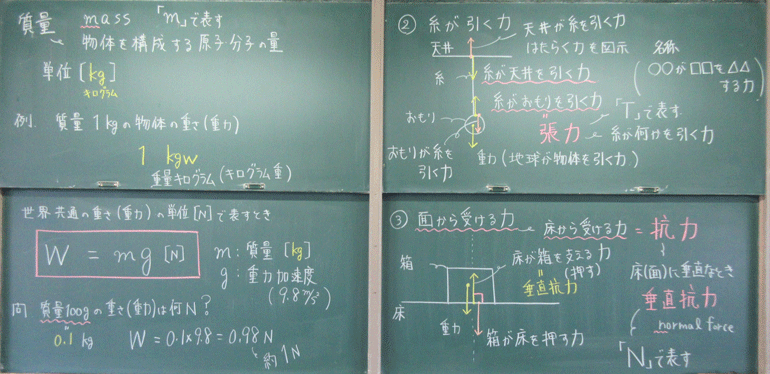 質量 mass 「m」で表す
物体を構成する原子・分子の量
単位[kg]
キログラム
例. 質量1kgの物体の重さ(重力)
1 kgw
重量キログラム(キログラム重)
世界共通の重さ(重力)の単位[N]で表すとき
W = mg [N]
m:質量[kg]
g:重力加速度
(9.8m/s²)
問 質量100gの重さ(重力)は何N?
0.1 kg
W = 0.1×9.8 = 0.98N
約1N
② 糸が引く力
天井が糸を引く力
天井
はたらく力を図示
名称
(○○が□□を△△
する力)
糸
糸が天井を引く力
糸がおもりを引く力
「T」で表す
おもり
張力
糸が何かを引く力
おもりが糸を
引く力
重力(地球が物体を引く力)
③ 面から受ける力
床から受ける力 = 抗力
箱
床が箱を支える力
(押す)
=
垂直抗力
床(面)に垂直なとき
垂直抗力
normal force
床
重力
箱が床を押す力
「N」で表す